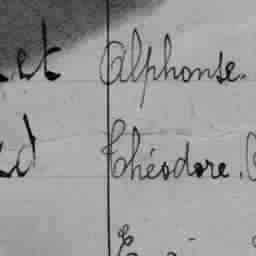 et Alphonse.
d Théodore.